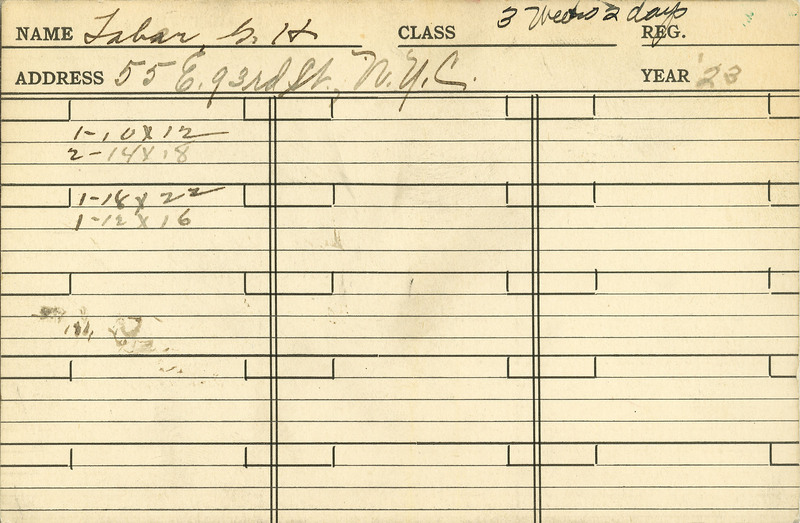 NAME Labar, G. H CLASS 3 Weeks 2 days REG.
ADDRESS 55 E. 93rd St., N.Y.C. YEAR '23
1-10 x 12
2-14 x 18
1-18 x 22
1-12 x 16